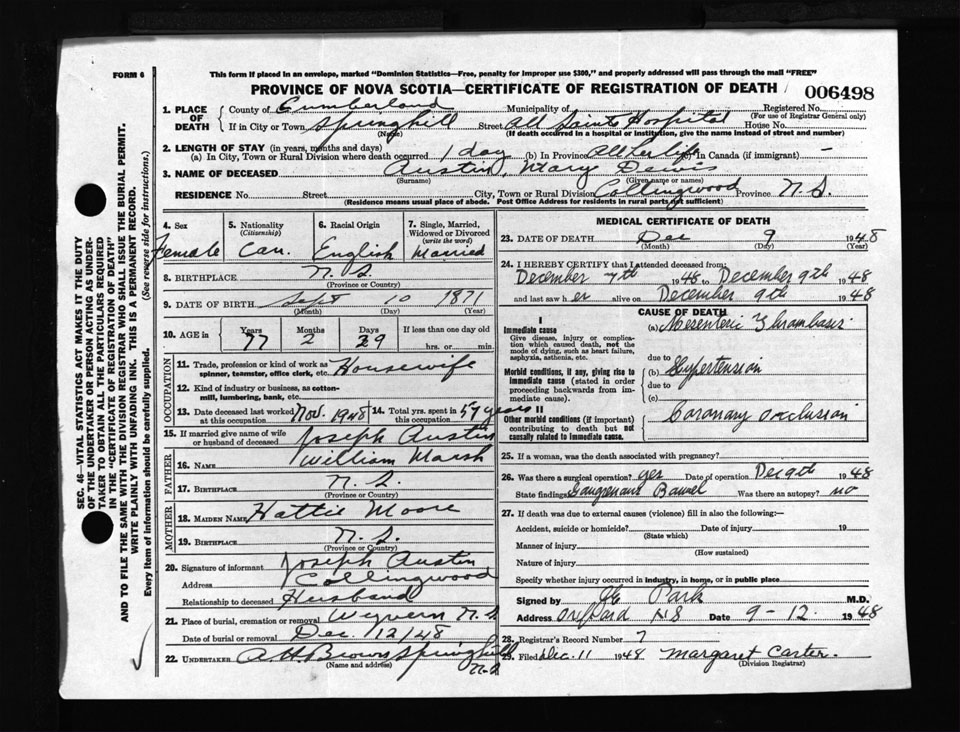 FORM 6
This form if placed in an envelope, marked "Dominion Statistics—Free, penalty for improper use $300," and properly addressed will pass through the mail "FREE"
PROVINCE OF NOVA SCOTIA—CERTIFICATE OF REGISTRATION OF DEATH
006498
1. PLACE OF DEATH
County of Cumberland Municipality of Registered No.
(For use of Registrar General only)
If in City or Town Springhill Street All Saints Hospital House No.
(Name) (If death occurred in a hospital or institution, give the name instead of street and number)
2. LENGTH OF STAY (in years, months and days)
(a) In City, Town or Rural Division where death occurred 1 day (b) In Province All her life in Canada (if immigrant) —
3. NAME OF DECEASED Austin, Mary Dewis
(Surname) (Given name or names)
RESIDENCE No. Street City, Town or Rural Division Collingwood Province N.S.
(Residence means usual place of abode. Post Office Address for residents in rural parts not sufficient)
4. Sex
Female
5. Nationality
(Citizenship)
Can.
6. Racial Origin
English
7. Single, Married, Widowed or Divorced
(write the word)
Married
8. BIRTHPLACE N.S.
(Province or Country)
9. DATE OF BIRTH Sept 10 1871
(Month) (Day) (Year)
10. AGE in
Years Months Days If less than one day old
77 2 29 hrs. or min.
OCCUPATION
11. Trade, profession or kind of work as spinner, teamster, office clerk, etc. Housewife
12. Kind of industry or business, as cotton-mill, lumbering, bank, etc.
13. Date deceased last worked at this occupation Nov. 1948
14. Total yrs. spent in this occupation 57 years
15. If married give name of wife or husband of deceased Joseph Austin
FATHER
16. NAME William Marsh
17. BIRTHPLACE N.S.
(Province or Country)
MOTHER
18. MAIDEN NAME Hattie Moore
19. BIRTHPLACE N.S.
(Province or Country)
20. Signature of informant Joseph Austin
Address Collingwood
Relationship to deceased Husband
21. Place of burial, cremation or removal Wyvern N.S
Date of burial or removal Dec. 12/48
22. UNDERTAKER A.H. Brown Springhill
(Name and address) N.S
MEDICAL CERTIFICATE OF DEATH
23. DATE OF DEATH Dec 9 1948
(Month) (Day) (Year)
24. I HEREBY CERTIFY that I attended deceased from:
December 7th 1948 to December 9th 1948
and last saw her alive on December 9th 1948
CAUSE OF DEATH
I
Immediate cause
Give disease, injury or complication which caused death, not the mode of dying, such as heart failure, asphyxia, asthenia, etc.
(a) Mesenteric Thrombosis
due to
Morbid conditions, if any, giving rise to immediate cause (stated in order proceeding backwards from immediate cause)
(b) Hypertension
due to
(c)
II
Other morbid conditions (if important) contributing to death but not causally related to immediate cause.
Coronary occlusion
25. If a woman, was the death associated with pregnancy?
26. Was there a surgical operation? yes Date of operation Dec 9th 1948
State findings Gangrenous Bowel Was there an autopsy? no
27. If death was due to external causes (violence) fill in also the following:—
Accident, suicide or homicide? Date of injury 19
(State which)
Manner of injury
(How sustained)
Nature of injury
Specify whether injury occurred in industry, in home, or in public place
Signed by Park M.D.
Address Oxford N S Date 9-12. 1948
28. Registrar's Record Number 7
29. Filed Dec. 11 1948 Margaret Carter.
(Division Registrar)
SEC. 46—VITAL STATISTICS ACT MAKES IT THE DUTY
OF THE UNDERTAKER OR PERSON ACTING AS UNDER-
TAKER TO OBTAIN ALL THE PARTICULARS REQUIRED
IN THE "CERTIFICATE OF REGISTRATION OF DEATH"
AND TO FILE THE SAME WITH THE DIVISION REGISTRAR WHO SHALL ISSUE THE BURIAL PERMIT.
WRITE PLAINLY WITH UNFADING INK. THIS IS A PERMANENT RECORD.
Every item of Information should be carefully supplied. (See reverse side for instructions.)